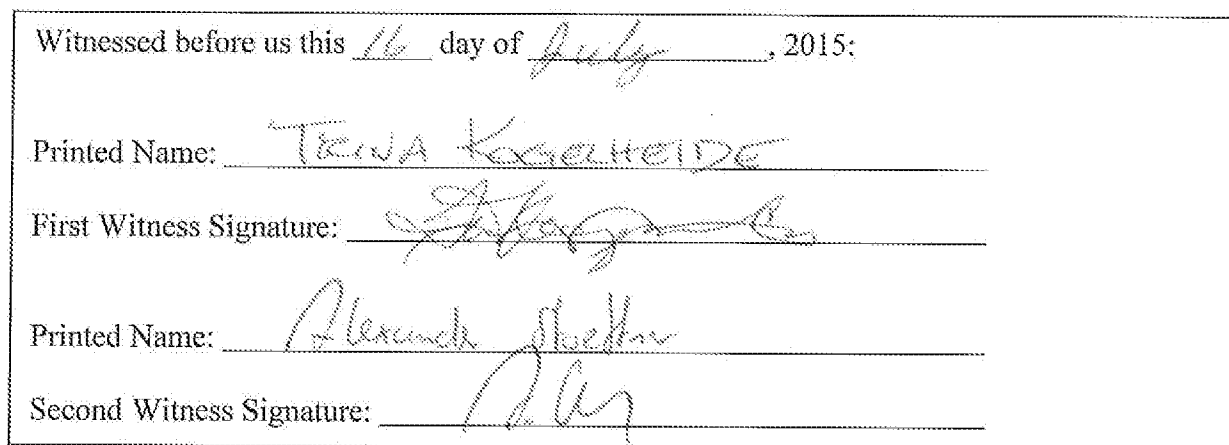 Witnessed before us this 16 day of July, 2015:
Printed Name: TRINA KOGELHEIDE
First Witness Signature:
Printed Name:
Second Witness Signature: